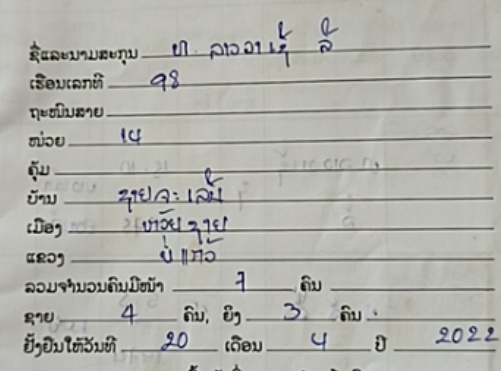 ຊື່ແລະນາມສະກຸນ ທ. ລາວວາ ເຊັ້ ລີ້
ເຮືອນເລກທີ 98
ຖະໜົນສາຍ
ໜ່ວຍ 14
ຄຸ້ມ
ບ້ານ ຊາຍຈະເລີນ
ເມືອງ ຫ້ວຍຊາຍ
ແຂວງ ບໍ່ແກ້ວ
ລວມຈຳນວນຄົນມີໜ້າ 7 ຄົນ
ຊາຍ 4 ຄົນ, ຍິງ 3 ຄົນ.
ຢັ້ງຢືນໃຫ້ວັນທີ 20 ເດືອນ 4 ປີ 2022